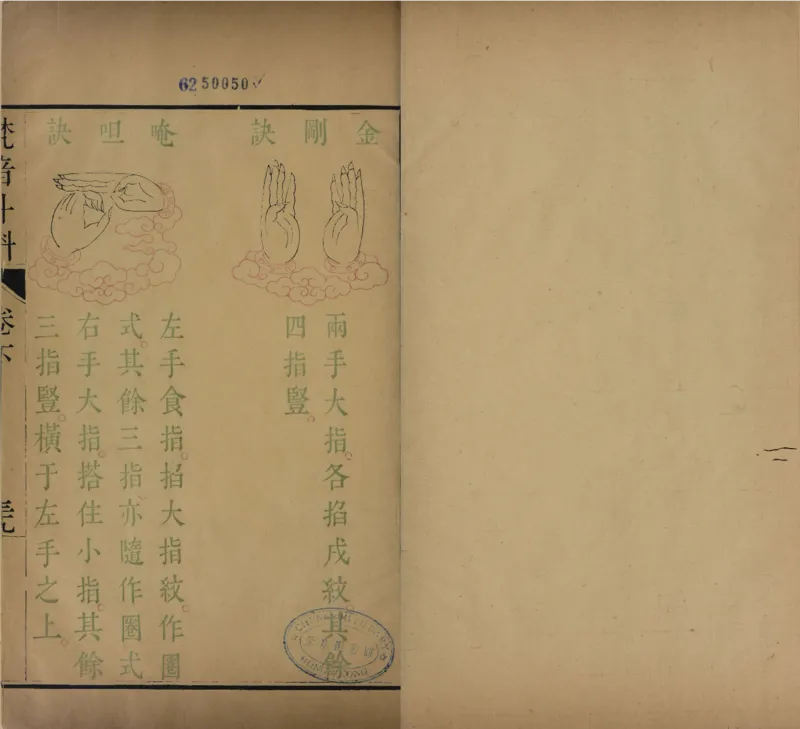 6250050
金剛訣
兩手大指。各掐戌紋。其餘
四指豎。
唵呾訣
左手食指。掐大指紋。作圈
式。其餘三指亦隨作圈式
右手大指。搭住小指。其餘
三指豎。橫于左手之上。
梵音斗科
卷下